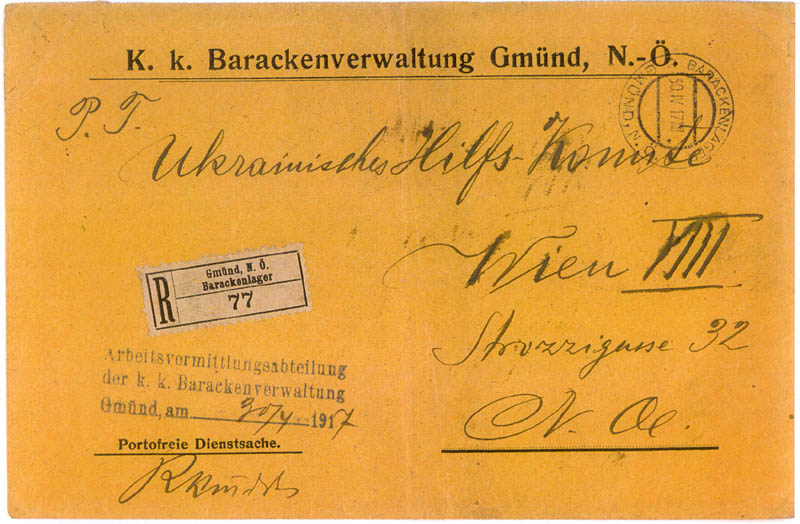 K. k. Barackenverwaltung Gmünd, N.-Ö.
GMÜND, N.Ö. BARACKENLAGER
30.IV.17
P. T.
Ukrainisches Hilfs-Komite
Wien VIII.
Strozzigasse 32
N. Oe.
R
Gmünd, N. Ö.
Barackenlager
77
Arbeitsvermittlungsabteilung
der k. k. Barackenverwaltung
Gmünd, am 30/4 1917
Portofreie Dienstsache.